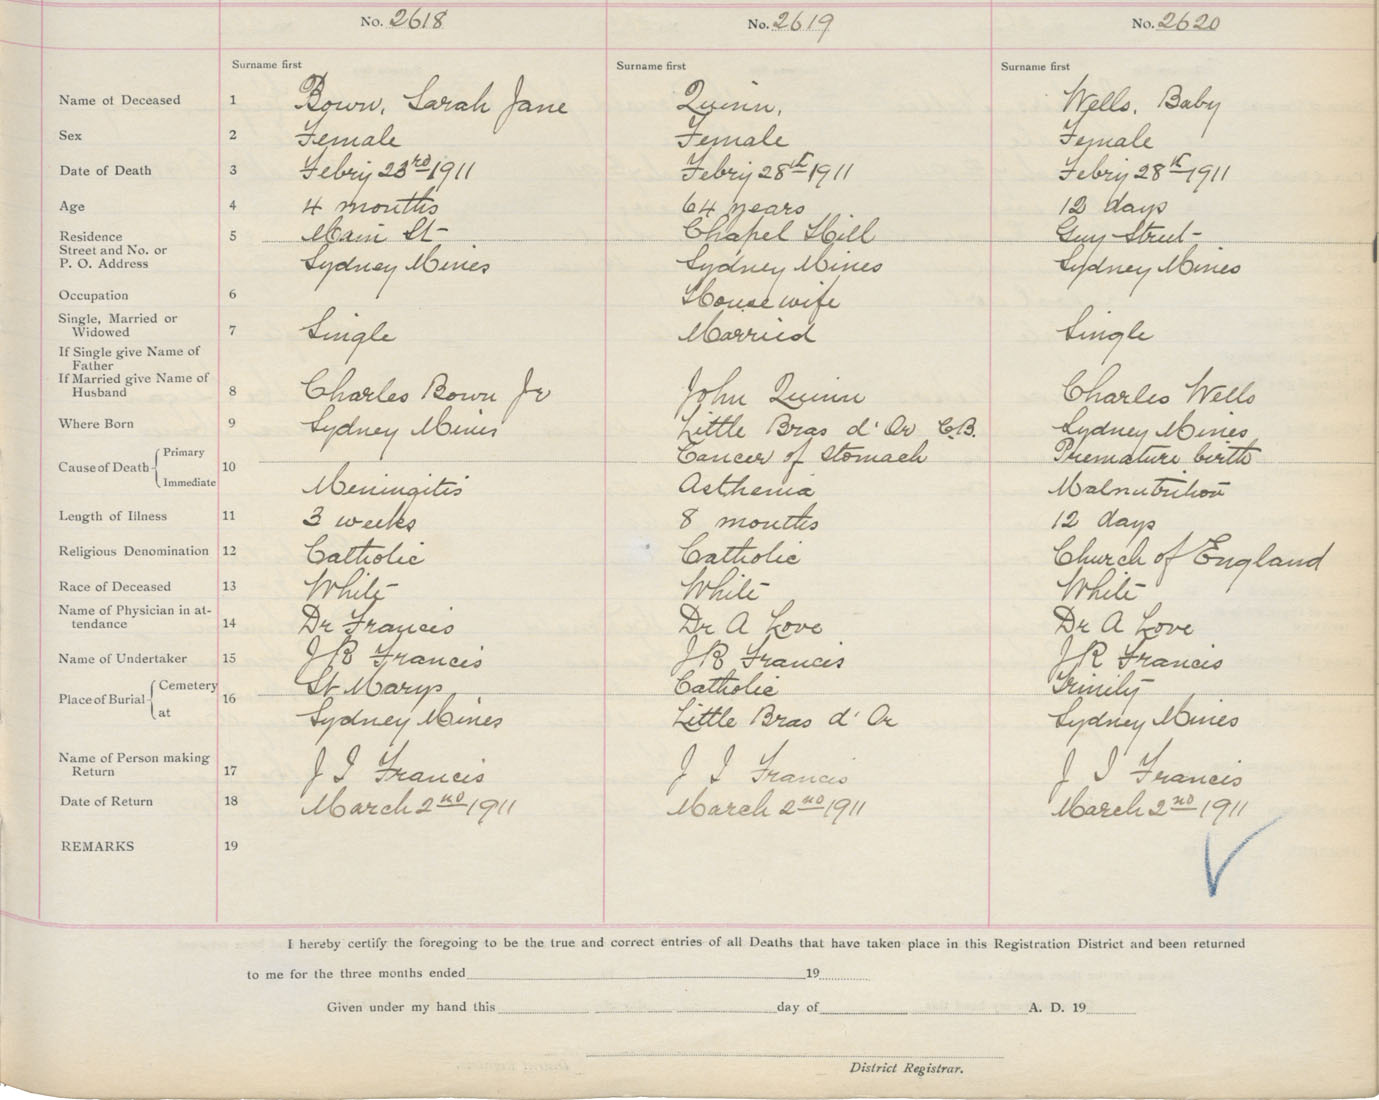 No. 2618 No. 2619 No. 2620
Surname first Surname first Surname first
Name of Deceased 1 Bown, Sarah Jane Quinn, Wells, Baby
Sex 2 Female Female Female
Date of Death 3 Febry 23rd 1911 Febry 28th 1911 Febry 28th 1911
Age 4 4 months 64 years 12 days
Residence 5 Main St Chapel Hill Guy Street
Street and No. or
P. O. Address Sydney Mines Sydney Mines Sydney Mines
Occupation 6 Housewife
Single, Married or
Widowed 7 Single Married Single
If Single give Name of
Father
If Married give Name of
Husband 8 Charles Bown Jr John Quinn Charles Wells
Where Born 9 Sydney Mines Little Bras d'Or C.B. Sydney Mines
Cause of Death 10 Primary Cancer of Stomach Premature birth
Immediate Meningitis Asthenia Malnutrition
Length of Illness 11 3 weeks 8 months 12 days
Religious Denomination 12 Catholic Catholic Church of England
Race of Deceased 13 White White White
Name of Physician in at-
tendance 14 Dr Francis Dr A Love Dr A Love
Name of Undertaker 15 J R Francis J R Francis J R Francis
Place of Burial 16 Cemetery St Marys Catholic Trinity
at Sydney Mines Little Bras d'Or Sydney Mines
Name of Person making
Return 17 J I Francis J I Francis J I Francis
Date of Return 18 March 2nd 1911 March 2nd 1911 March 2nd 1911
REMARKS 19
I hereby certify the foregoing to be the true and correct entries of all Deaths that have taken place in this Registration District and been returned
to me for the three months ended 19
Given under my hand this day of A. D. 19
District Registrar.